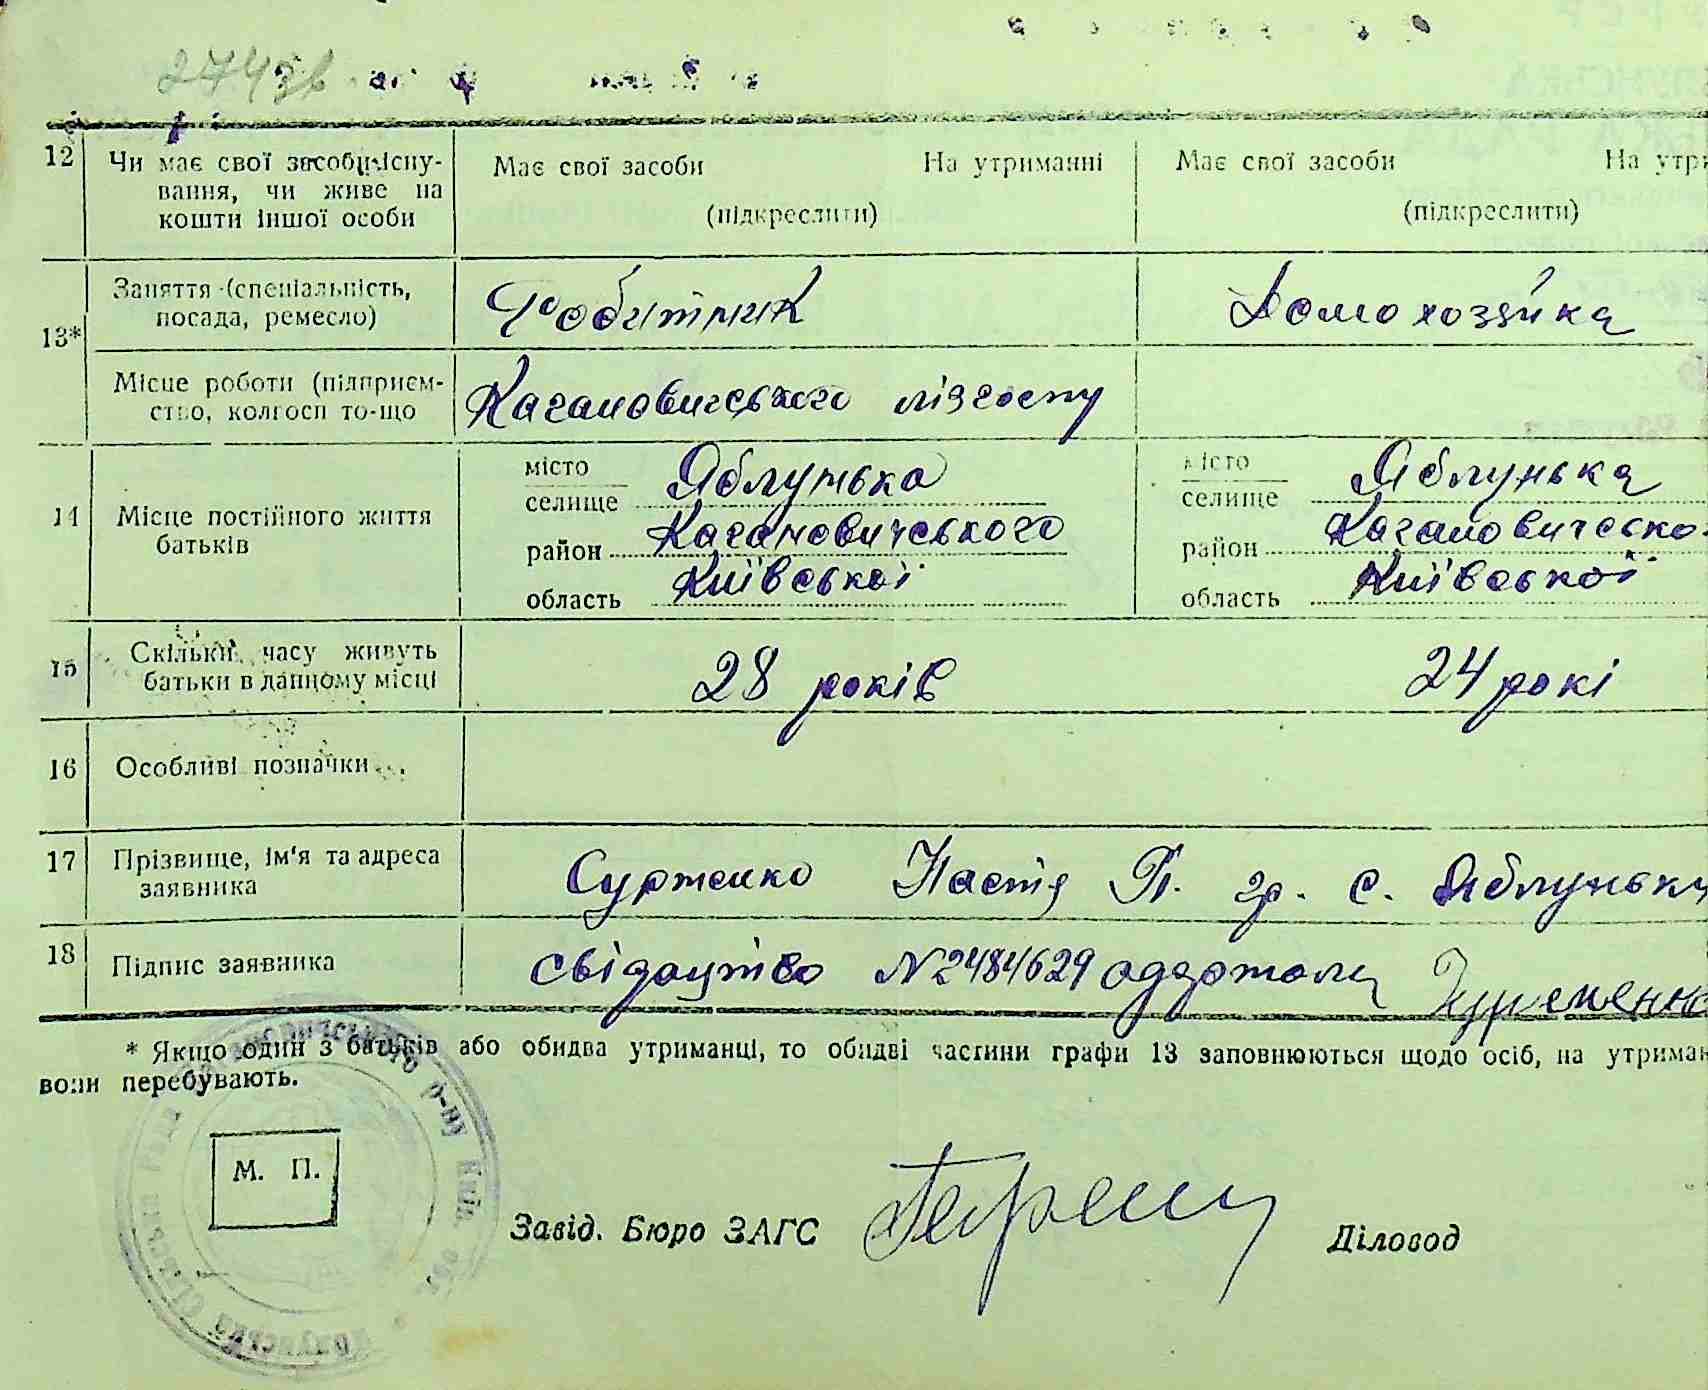 12 Чи має свої засоби існу- Має свої засоби На утриманні Має свої засоби На утри
вання, чи живе на
кошти іншої особи (підкреслити) (підкреслити)
13* Заняття (спеціальність, Робитник Домохозяйка
посада, ремесло)
Місце роботи (підприєм- Кагановичського лісгоспу
ство, колгосп то-що
14 Місце постійного життя
батьків
місто Яблунька місто Яблунька
селище селище
район Кагановичського район Кагановичсько
область Київської область Київської
15 Скільки часу живуть 28 років 24 рокі
батьки в данному місці
16 Особливі позначки
17 Прізвище, ім'я та адреса Сурженко Настя П. гр. с. Яблунька
заявника
18 Підпис заявника свідоцтво №2484629 одержала
* Якщо один з батьків або обидва утриманці, то обидві частини графи 13 заповнюються щодо осіб, на утриман
вони перебувають.
М. П.
Завід. Бюро ЗАГС Діловод